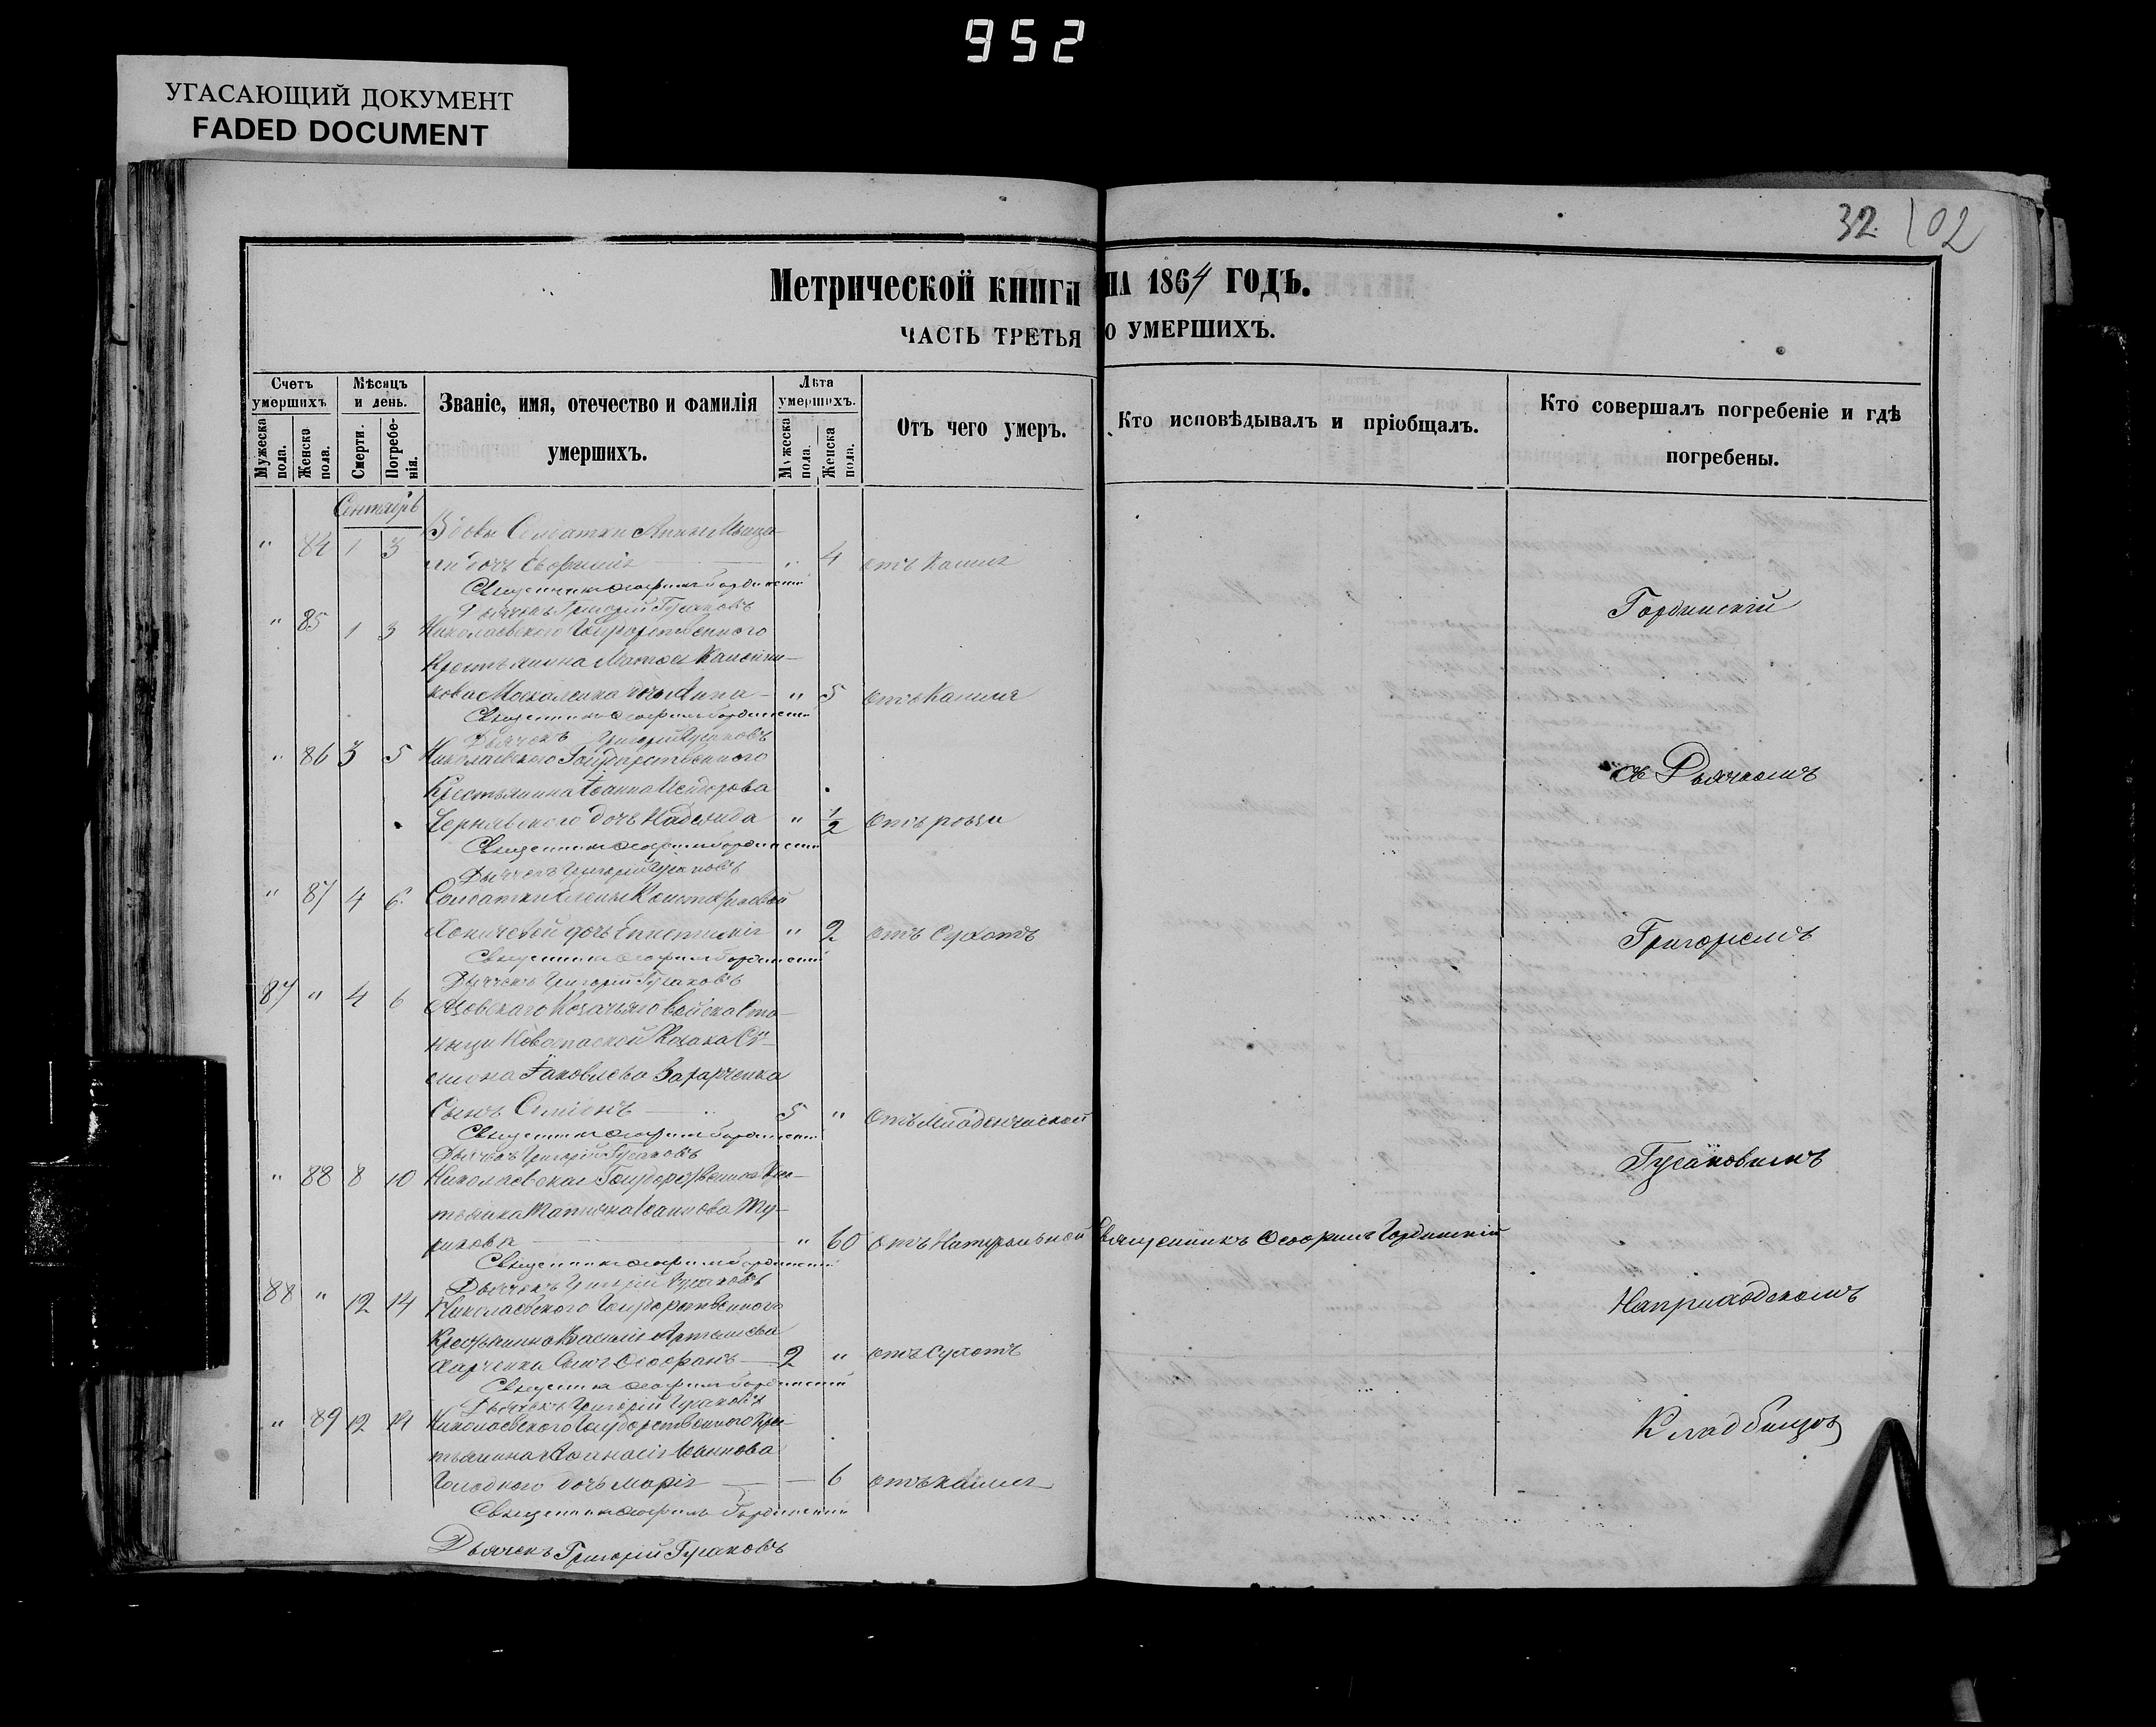 952
УГАСАЮЩИЙ ДОКУМЕНТ
FADED DOCUMENT
32 102
Метрической книги на 1864 годъ.
ЧАСТЬ ТРЕТЬЯ О УМЕРШИХЪ.
Счетъ умершихъ
Мужеска пола.
Женска пола.
Мѣсяцъ и день.
Смерти.
Погребенія.
Званіе, имя, отечество и фамилія умершихъ.
Лѣта умершихъ.
Мужеска пола.
Женска пола.
Отъ чего умеръ.
Кто исповѣдывалъ и пріобщалъ.
Кто совершалъ погребеніе и гдѣ погребены.
Сентябрь
Вдовы Солдатки Анны
" 84 1 3 дочь " 4 отъ кашля
Священникъ Ѳеофилъ Гординскій
Дьячекъ Григорій Гусаковъ
" 85 1 3 Николаевского Государственного
Крестьянина
Москаленка дочь Анна " 5 отъ кашля
Священникъ Ѳеофилъ Гординскій
Дьячекъ Григорій Гусаковъ
" 86 3 5 Николаевского Государственного
Крестьянина Іоанна Исидорова
Чернявского дочь Надежда " 1/2 отъ рожи
Священникъ Ѳеофилъ Гординскій
Дьячекъ Григорій Гусаковъ
" 87 4 6 Солдатки Елены
дочь " 2 отъ сухотъ
Священникъ Ѳеофилъ Гординскій
Дьячекъ Григорій Гусаковъ
87 " 4 6 Азовскаго Козачьяго войска Ста-
ницы Новоспаской Козака Си-
меона Іаковлева Захарченка
Сынъ Симеонъ 5 " отъ младенческой
Священникъ Ѳеофилъ Гординскій
Дьячекъ Григорій Гусаковъ
" 88 8 10 Николаевская Государственная Крес-
тьянка Іоаннова Ту-
рикова " 60 отъ натуральной Священникъ Ѳеофилъ Гординскій
Священникъ Ѳеофилъ Гординскій
Дьячекъ Григорій Гусаковъ
88 " 12 14 Николаевского Государственного
Крестьянина Василія Артемова
Харченка Сынъ Ѳеофанъ 2 " отъ сухотъ
Священникъ Ѳеофилъ Гординскій
Дьячекъ Григорій Гусаковъ
" 89 12 14 Николаевского Государственного Крес-
тьянина Аѳанасія Іоаннова
Голодного дочь Марія 6 отъ кашля
Священникъ Ѳеофилъ Гординскій
Дьячекъ Григорій Гусаковъ
Гординскій
съ Дьячкомъ
Григоріемъ
Гусаковымъ
На приходскомъ
Кладбищѣ